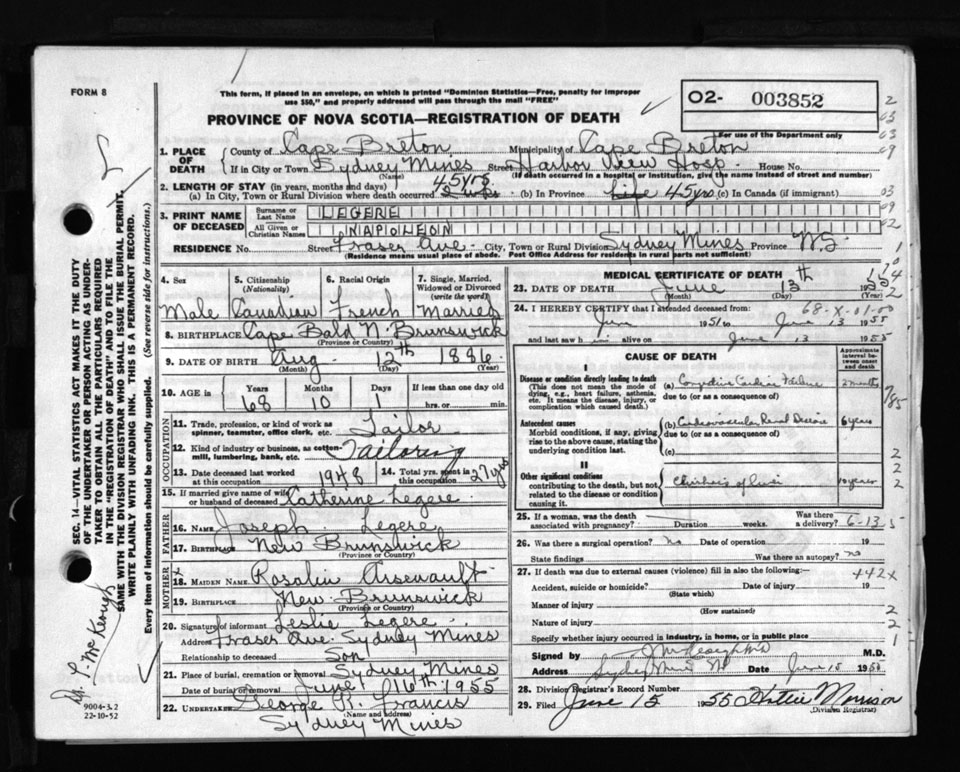 FORM 8
This form, if placed in an envelope, on which is printed "Dominion Statistics—Free, penalty for improper
use $50," and properly addressed will pass through the mail "FREE"
O2- 003852
For use of the Department only
PROVINCE OF NOVA SCOTIA—REGISTRATION OF DEATH
1. PLACE OF DEATH
County of Cape Breton Municipality of Cape Breton
If in City or Town Sydney Mines Street Harbor View Hosp House No.
(Name) (If death occurred in a hospital or institution, give the name instead of street and number)
2. LENGTH OF STAY (in years, months and days)
(a) In City, Town or Rural Division where death occurred 45 yrs (b) In Province life 45 yrs (c) In Canada (if immigrant)
3. PRINT NAME OF DECEASED
Surname or Last Name LEGERE
All Given or Christian Names NAPOLEON
RESIDENCE No. Street Fraser Ave. City, Town or Rural Division Sydney Mines Province N.S.
(Residence means usual place of abode. Post Office Address for residents in rural parts not sufficient)
4. Sex 5. Citizenship (Nationality) 6. Racial Origin 7. Single, Married, Widowed or Divorced (write the word)
Male Canadian French Married
8. BIRTHPLACE Cape Bald N. Brunswick
(Province or Country)
9. DATE OF BIRTH Aug 12th 1886
(Month) (Day) (Year)
10. AGE in Years Months Days If less than one day old
68 10 1 hrs. or min.
OCCUPATION
11. Trade, profession, or kind of work as spinner, teamster, office clerk, etc. Tailor
12. Kind of industry or business, as cotton-mill, lumbering, bank, etc. Tailoring
13. Date deceased last worked at this occupation 1948 14. Total yrs. spent in this occupation 27 yrs
15. If married give name of wife or husband of deceased Catherine Legere
FATHER
16. NAME Joseph Legere
17. BIRTHPLACE New Brunswick
(Province or Country)
MOTHER
18. MAIDEN NAME Rosalie Arsenault
19. BIRTHPLACE New Brunswick
(Province or Country)
20. Signature of informant Leslie Legere
Address Fraser Ave. Sydney Mines
Relationship to deceased Son
21. Place of burial, cremation or removal Sydney Mines
Date of burial or removal June 16th 1955
22. UNDERTAKER George R. Francis
(Name and address)
Sydney Mines
MEDICAL CERTIFICATE OF DEATH
23. DATE OF DEATH June 13th 1955
(Month) (Day) (Year)
24. I HEREBY CERTIFY that I attended deceased from:
68-X-01-00
June 1951 to June 13 1955
and last saw him alive on June 13 1955
CAUSE OF DEATH
Approximate interval between onset and death
I
Disease or condition directly leading to death
(This does not mean the mode of dying, e.g., heart failure, asthenia, etc. It means the disease, injury, or complication which caused death.)
(a) Congestive Cardiac Failure 2 months
due to (or as a consequence of)
Antecedent causes
Morbid conditions, if any, giving rise to the above cause, stating the underlying condition last.
(b) Cardiovascular Renal Disease 6 years
due to (or as a consequence of)
(c)
II
Other significant conditions
contributing to the death, but not related to the disease or condition causing it.
10 years
25. If a woman, was the death associated with pregnancy? Duration weeks. Was there a delivery? 6-13
26. Was there a surgical operation? No Date of operation 19
State findings Was there an autopsy? no
27. If death was due to external causes (violence) fill in also the following:-
442X
Accident, suicide or homicide? Date of injury 19
(State which)
Manner of injury
(How sustained)
Nature of injury
Specify whether injury occurred in industry, in home, or in public place
Signed by M.D.
Address Sydney Mines Date June 15 1955
28. Division Registrar's Record Number
29. Filed June 15 1955 Hattie Morrison
(Division Registrar)
SEC. 14—VITAL STATISTICS ACT MAKES IT THE DUTY
OF THE UNDERTAKER OR PERSON ACTING AS UNDER-
TAKER TO OBTAIN ALL THE PARTICULARS REQUIRED
IN THE "REGISTRATION OF DEATH" AND TO FILE THE
SAME WITH THE DIVISION REGISTRAR WHO SHALL ISSUE THE BURIAL PERMIT.
WRITE PLAINLY WITH UNFADING INK. THIS IS A PERMANENT RECORD.
Every item of information should be carefully supplied. (See reverse side for instructions.)
Dr. L. McKeough
9004-3.2
22-10-52